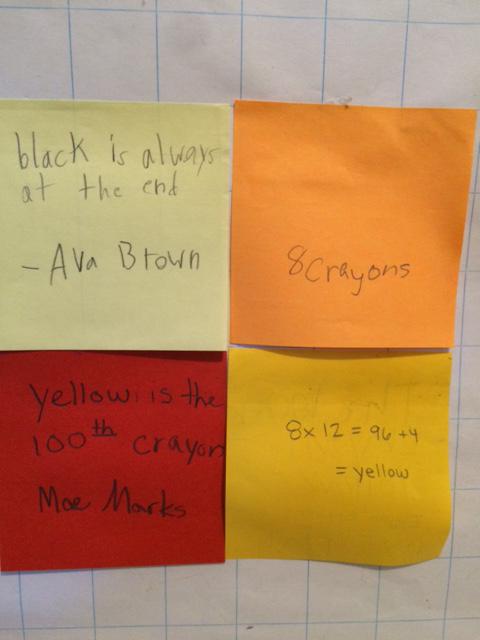 black is always
at the end
- Ava Brown
8 Crayons
Yellow is the
100th crayon
Moe Marks
8x 12 = 96 +4
= yellow